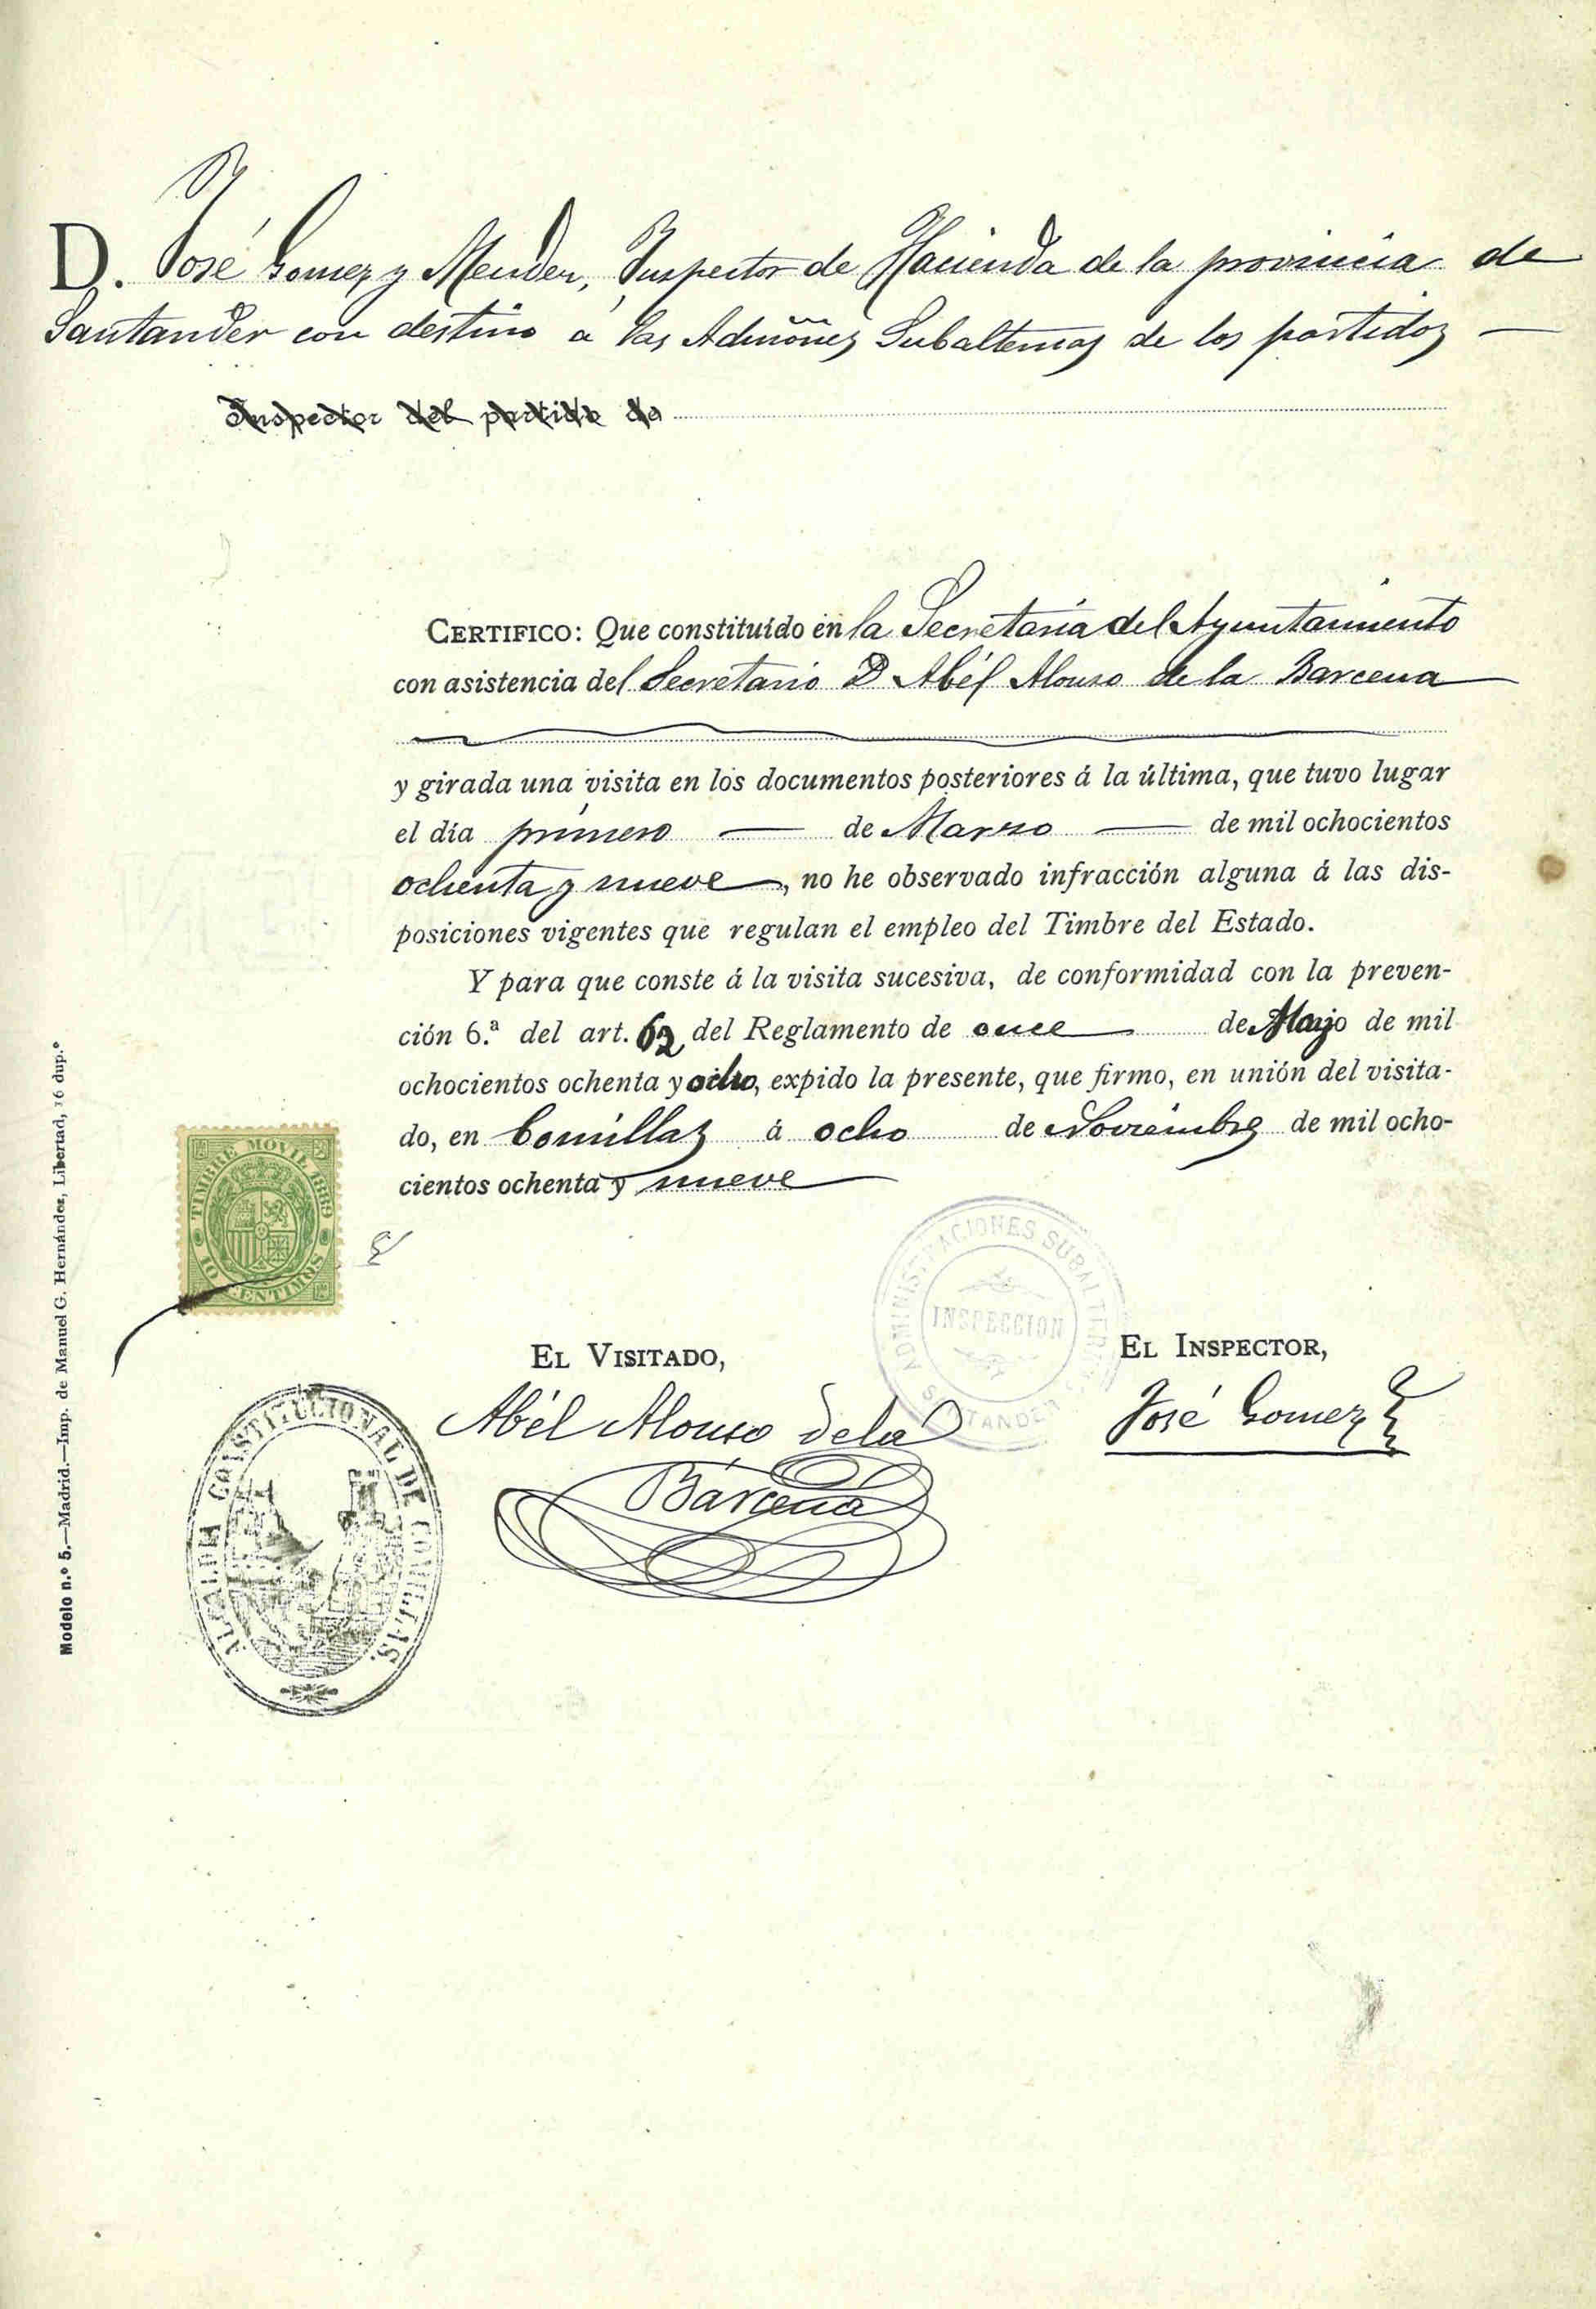 D. José Gomez y Mender, Inspector de Hacienda de la provincia de
Santander con destino a las Admõnes Subalternas de los partidos
Inspector del partido de
CERTIFICO: Que constituído en la Secretaria del Ayuntamiento
con asistencia del Secretario D Abél Alonso de la Barcena
y girada una visita en los documentos posteriores á la última, que tuvo lugar
el día primero — de Marzo — de mil ochocientos
ochenta y nueve, no he observado infracción alguna á las dis-
posiciones vigentes que regulan el empleo del Timbre del Estado.
Y para que conste á la visita sucesiva, de conformidad con la preven-
ción 6.ª del art. 62 del Reglamento de once de Mayo de mil
ochocientos ochenta y ocho, expido la presente, que firmo, en unión del visita-
do, en Comillas á ocho de Noviembre de mil ocho-
cientos ochenta y nueve
TIMBRE MOVIL 1889
10 CENTIMOS
ADMINISTRACIONES SUBALTERNAS
INSPECCION
SANTANDER
EL VISITADO,
EL INSPECTOR,
Abél Alonso de la
Bárcena
José Gomez
ALCALDIA CONSTITUCIONAL DE COMILLAS.
Modelo n.º 5.—Madrid.—Imp. de Manuel G. Hernández, Libertad, 16 dup.º